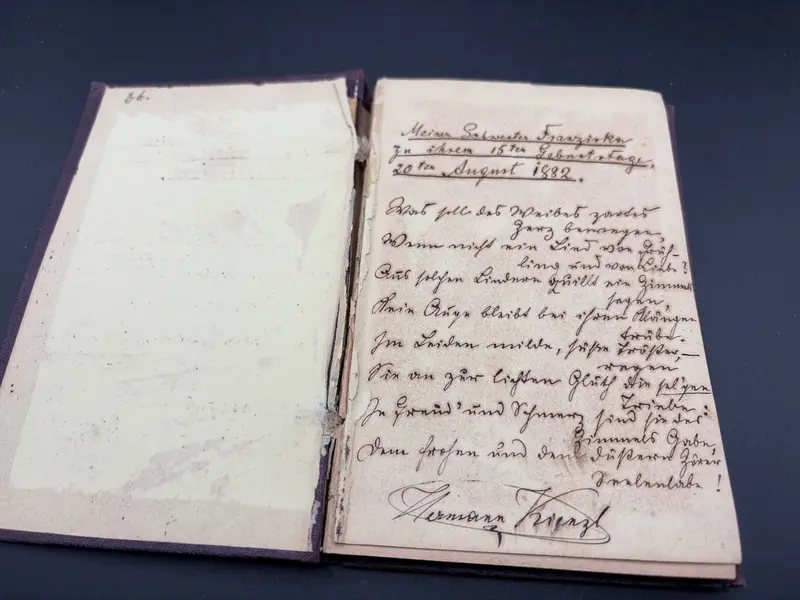 66.
Meiner Schwester Franziska
zu ihrem 15ten Geburtstage,
20ten August 1882.
Was soll des Weibes zartes
Herz bewegen,
Wenn nicht ein Lied von Früh-
ling und von Liebe?
Aus solchen Liedern quillt ein Himmels
segen,
Kein Auge bleibt bei ihren Klängen
trübe.
Im Leiden milde, süße Tröster, —
regen
Sie an zur lichten Gluth die sel'gen
Triebe.
In Freud' und Schmerz sind sie des
Himmels Gabe,
Dem frohen und dem düstern Hörer
Seelenlabe!
Hermann Kienzl